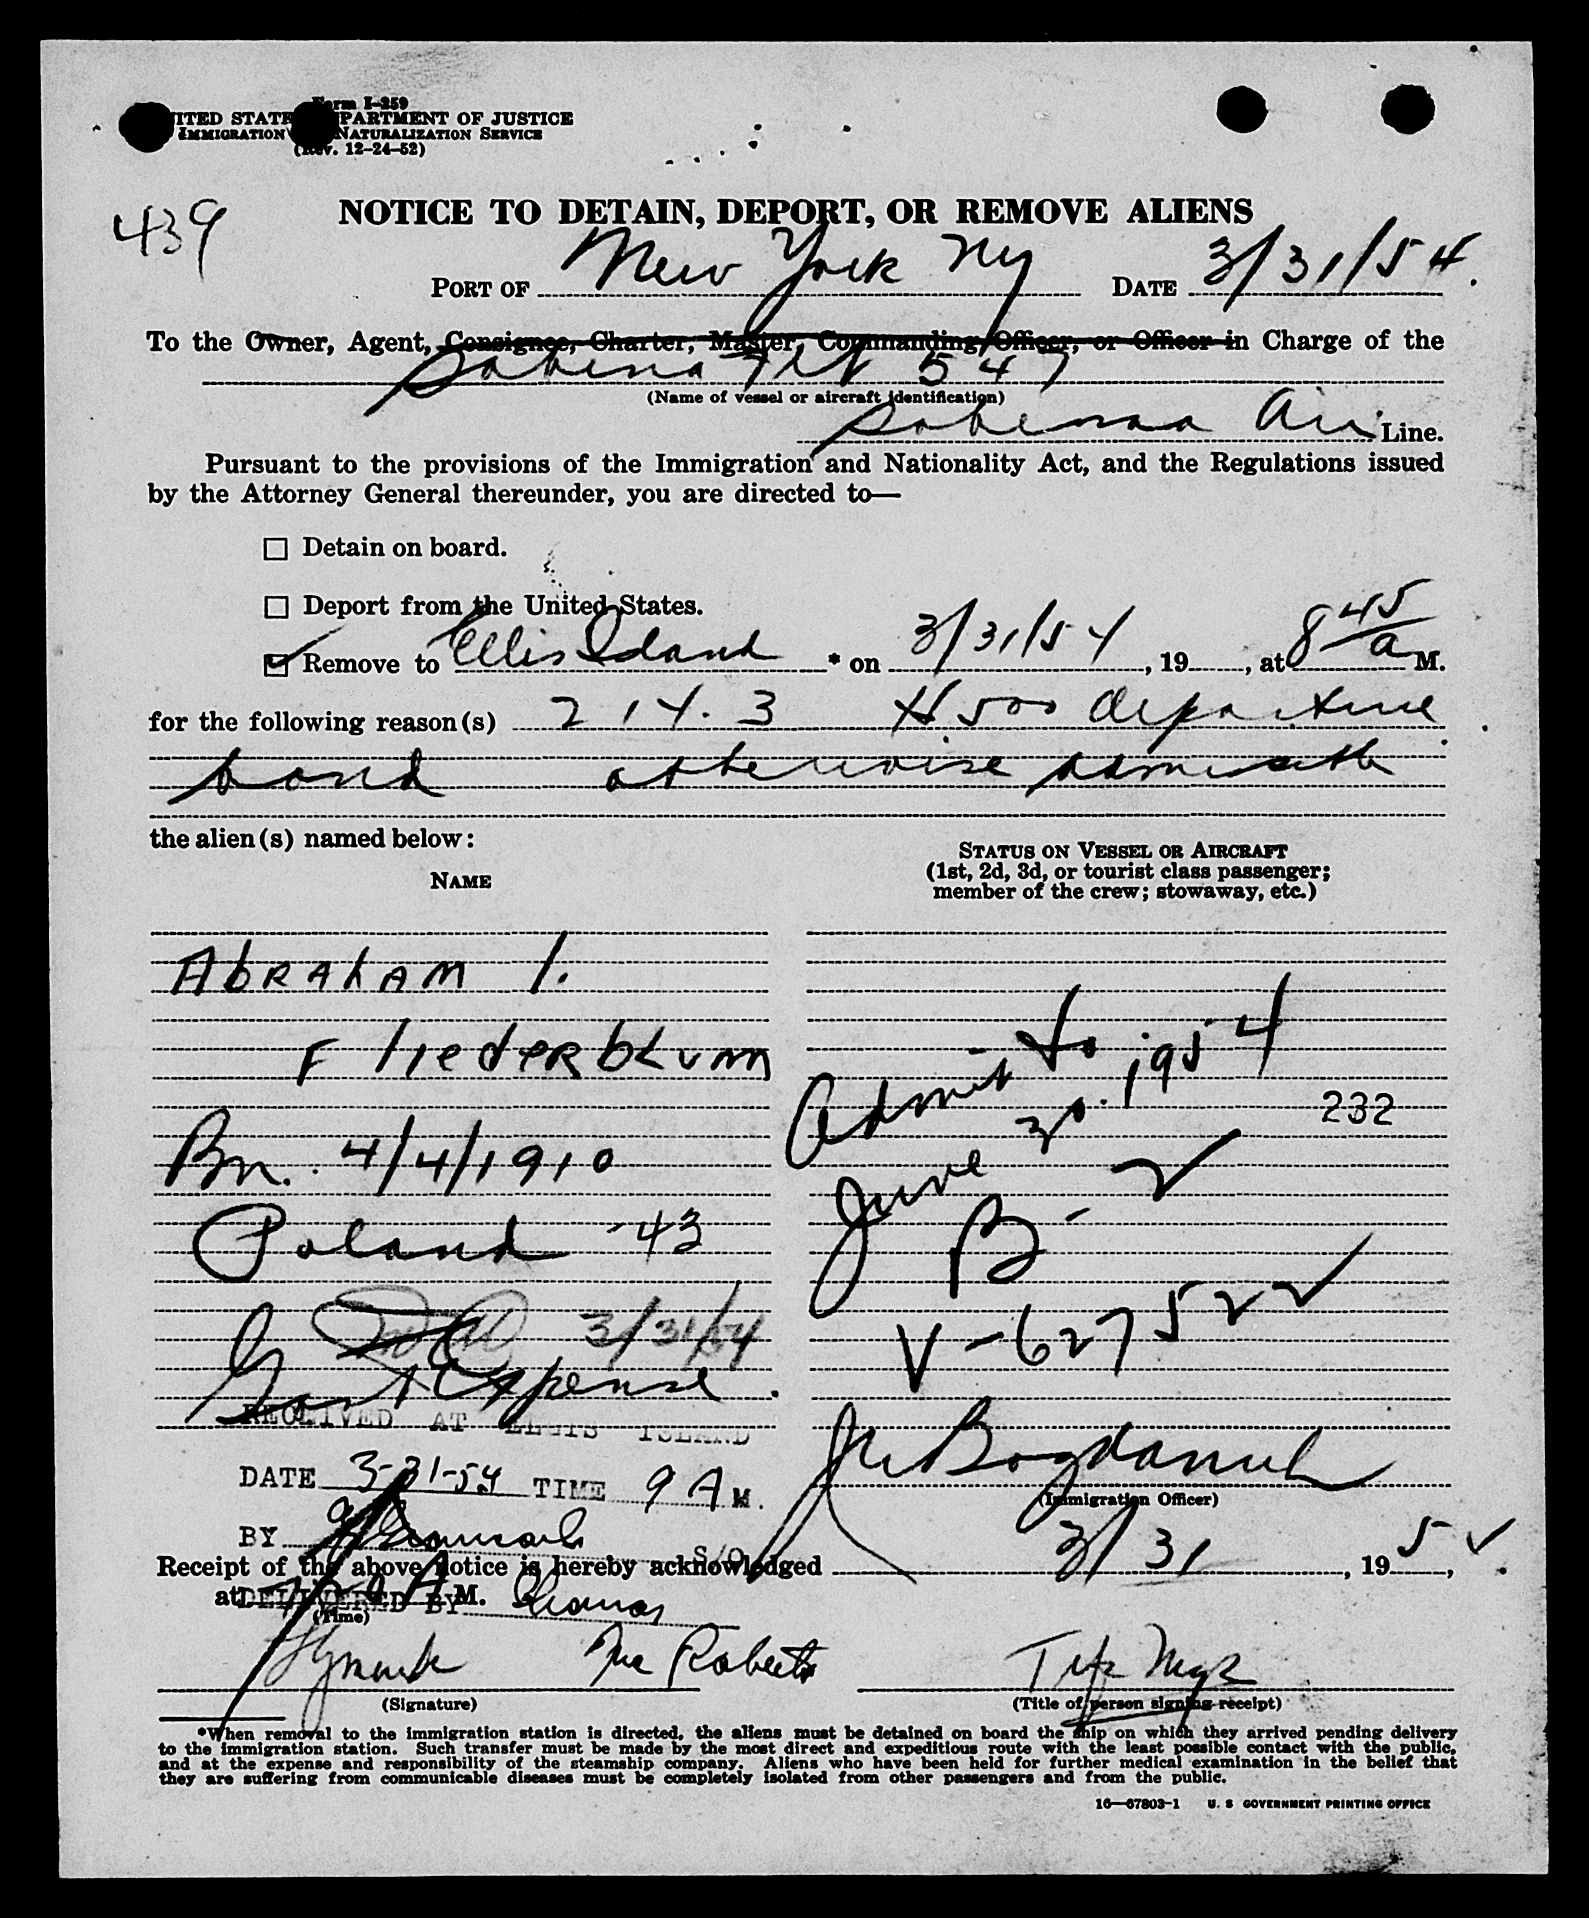 Form I-259
UNITED STATES DEPARTMENT OF JUSTICE
IMMIGRATION AND NATURALIZATION SERVICE
(Rev. 12-24-52)
439
NOTICE TO DETAIN, DEPORT, OR REMOVE ALIENS
PORT OF New York NY DATE 3/31/54.
To the Owner, Agent, Consignee, Charter, Master, Commanding Officer, or Officer in Charge of the
Sabena Flt 547
(Name of vessel or aircraft identification)
Sabena Air Line.
Pursuant to the provisions of the Immigration and Nationality Act, and the Regulations issued
by the Attorney General thereunder, you are directed to—
Detain on board.
Deport from the United States.
Remove to Ellis Island * on 3/31/54, 19, at 8 45/a M.
for the following reason(s) 214.3 $500 departure
bond otherwise admissible
the alien(s) named below:
NAME
STATUS ON VESSEL OR AIRCRAFT
(1st, 2d, 3d, or tourist class passenger;
member of the crew; stowaway, etc.)
Abraham I.
Fliederblum
Bn. 4/4/1910
Poland -43
Admit to
June 30. 1954
232
B-
V-627522
3/31/54
Gov't Expense.
RECEIVED AT ELLIS ISLAND
DATE 3-31-54 TIME 9 A M.
BY S/O
(Immigration Officer)
Receipt of the above notice is hereby acknowledged 3/31, 195
at A M.
DELIVERED BY Thomas
(Time)
Mc Roberts
(Signature)
(Title of person signing receipt)
*When removal to the immigration station is directed, the aliens must be detained on board the ship on which they arrived pending delivery
to the immigration station. Such transfer must be made by the most direct and expeditious route with the least possible contact with the public,
and at the expense and responsibility of the steamship company. Aliens who have been held for further medical examination in the belief that
they are suffering from communicable diseases must be completely isolated from other passengers and from the public.
16—67803-1 U. S GOVERNMENT PRINTING OFFICE